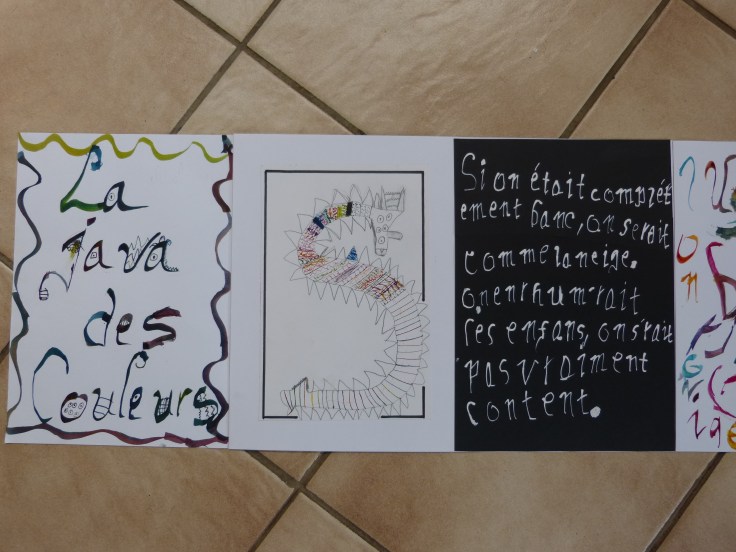 La
java
des
Couleurs
Si on était complét
ement banc, on serait
comme la neige.
on enrhum'rait
les enfans, on s'rait
pas vraiment
content.